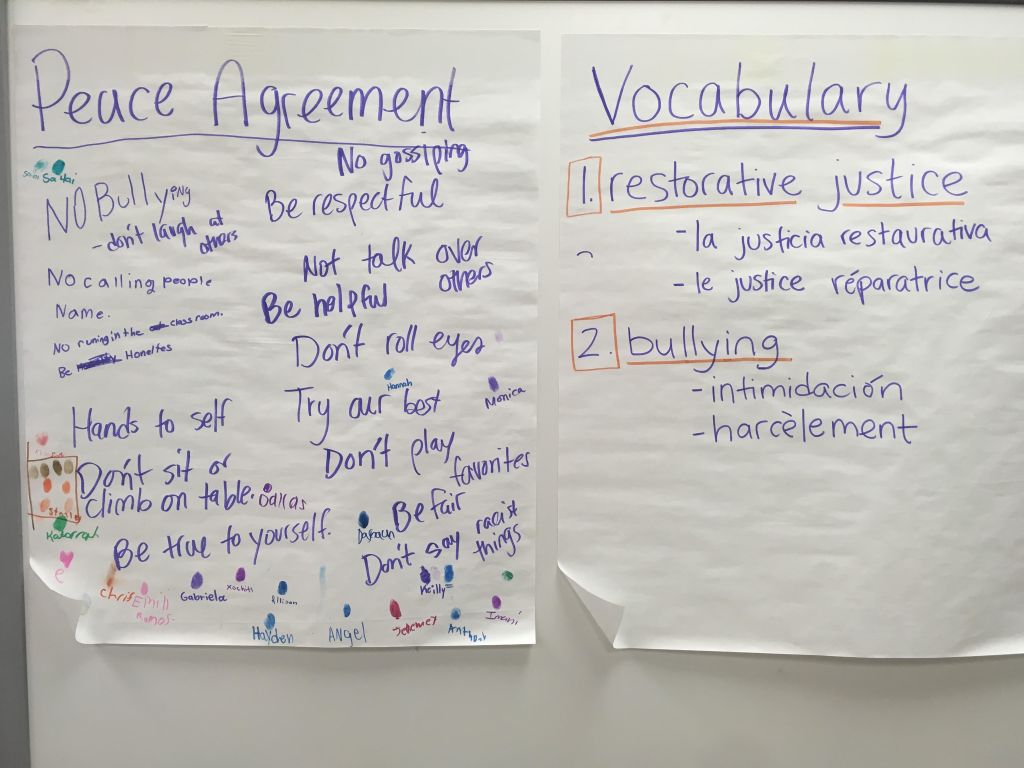 Peace Agreement
No gossiping
Sa Yai
NO Bullying
- don't laugh at
others
No calling people
Name.
NO runing in the class room.
Be Honeltes
Hands to self
Don't sit or
climb on table.
Be true to yourself.
Be respectful
Not talk over
others
Be helpful
Don't roll eyes
Hannah
Try our best
Monica
Don't play
favorites
Dallas
Be fair
Don't say racist
things
Chris
Emili
Ramos
Gabriela
Xochitl
Allison
Hayden
ANGEL
Keilly
Imani
Vocabulary
1. restorative justice
- la justicia restaurativa
- le justice réparatrice
2. bullying
- intimidación
- harcèlement